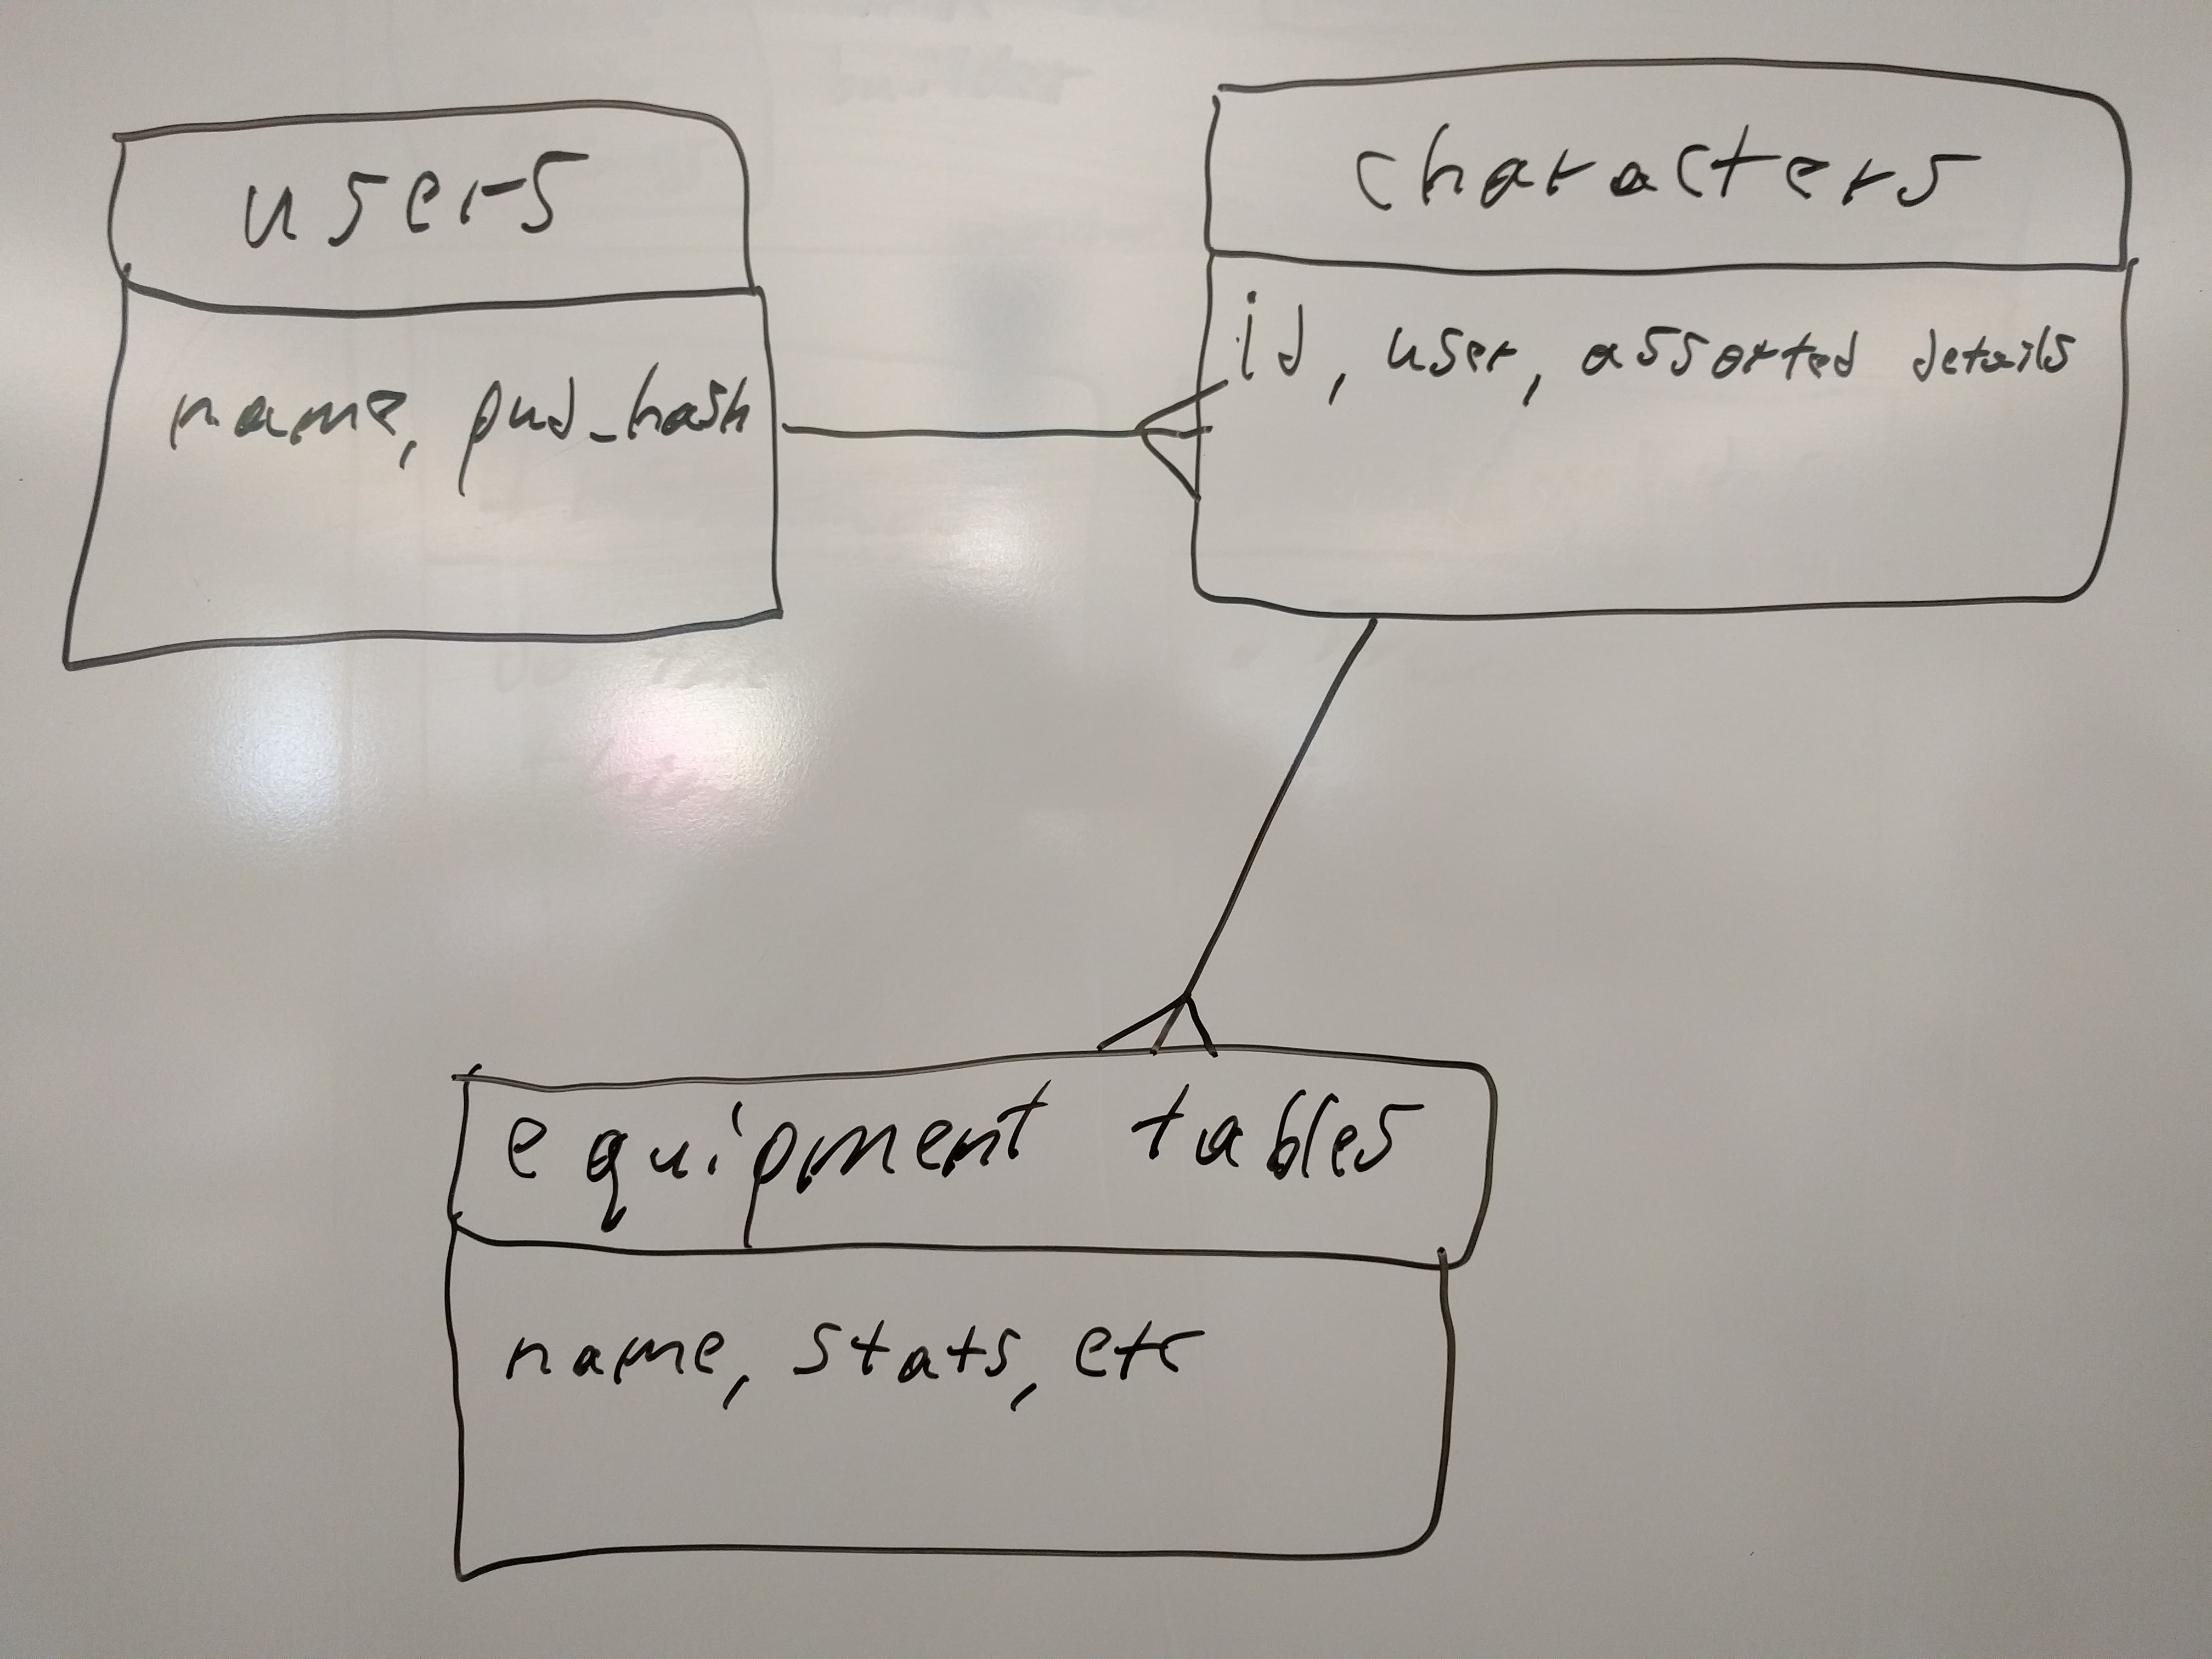 users
name, pwd_hash
characters
id, user, assorted details
equipment tables
name, stats, etc